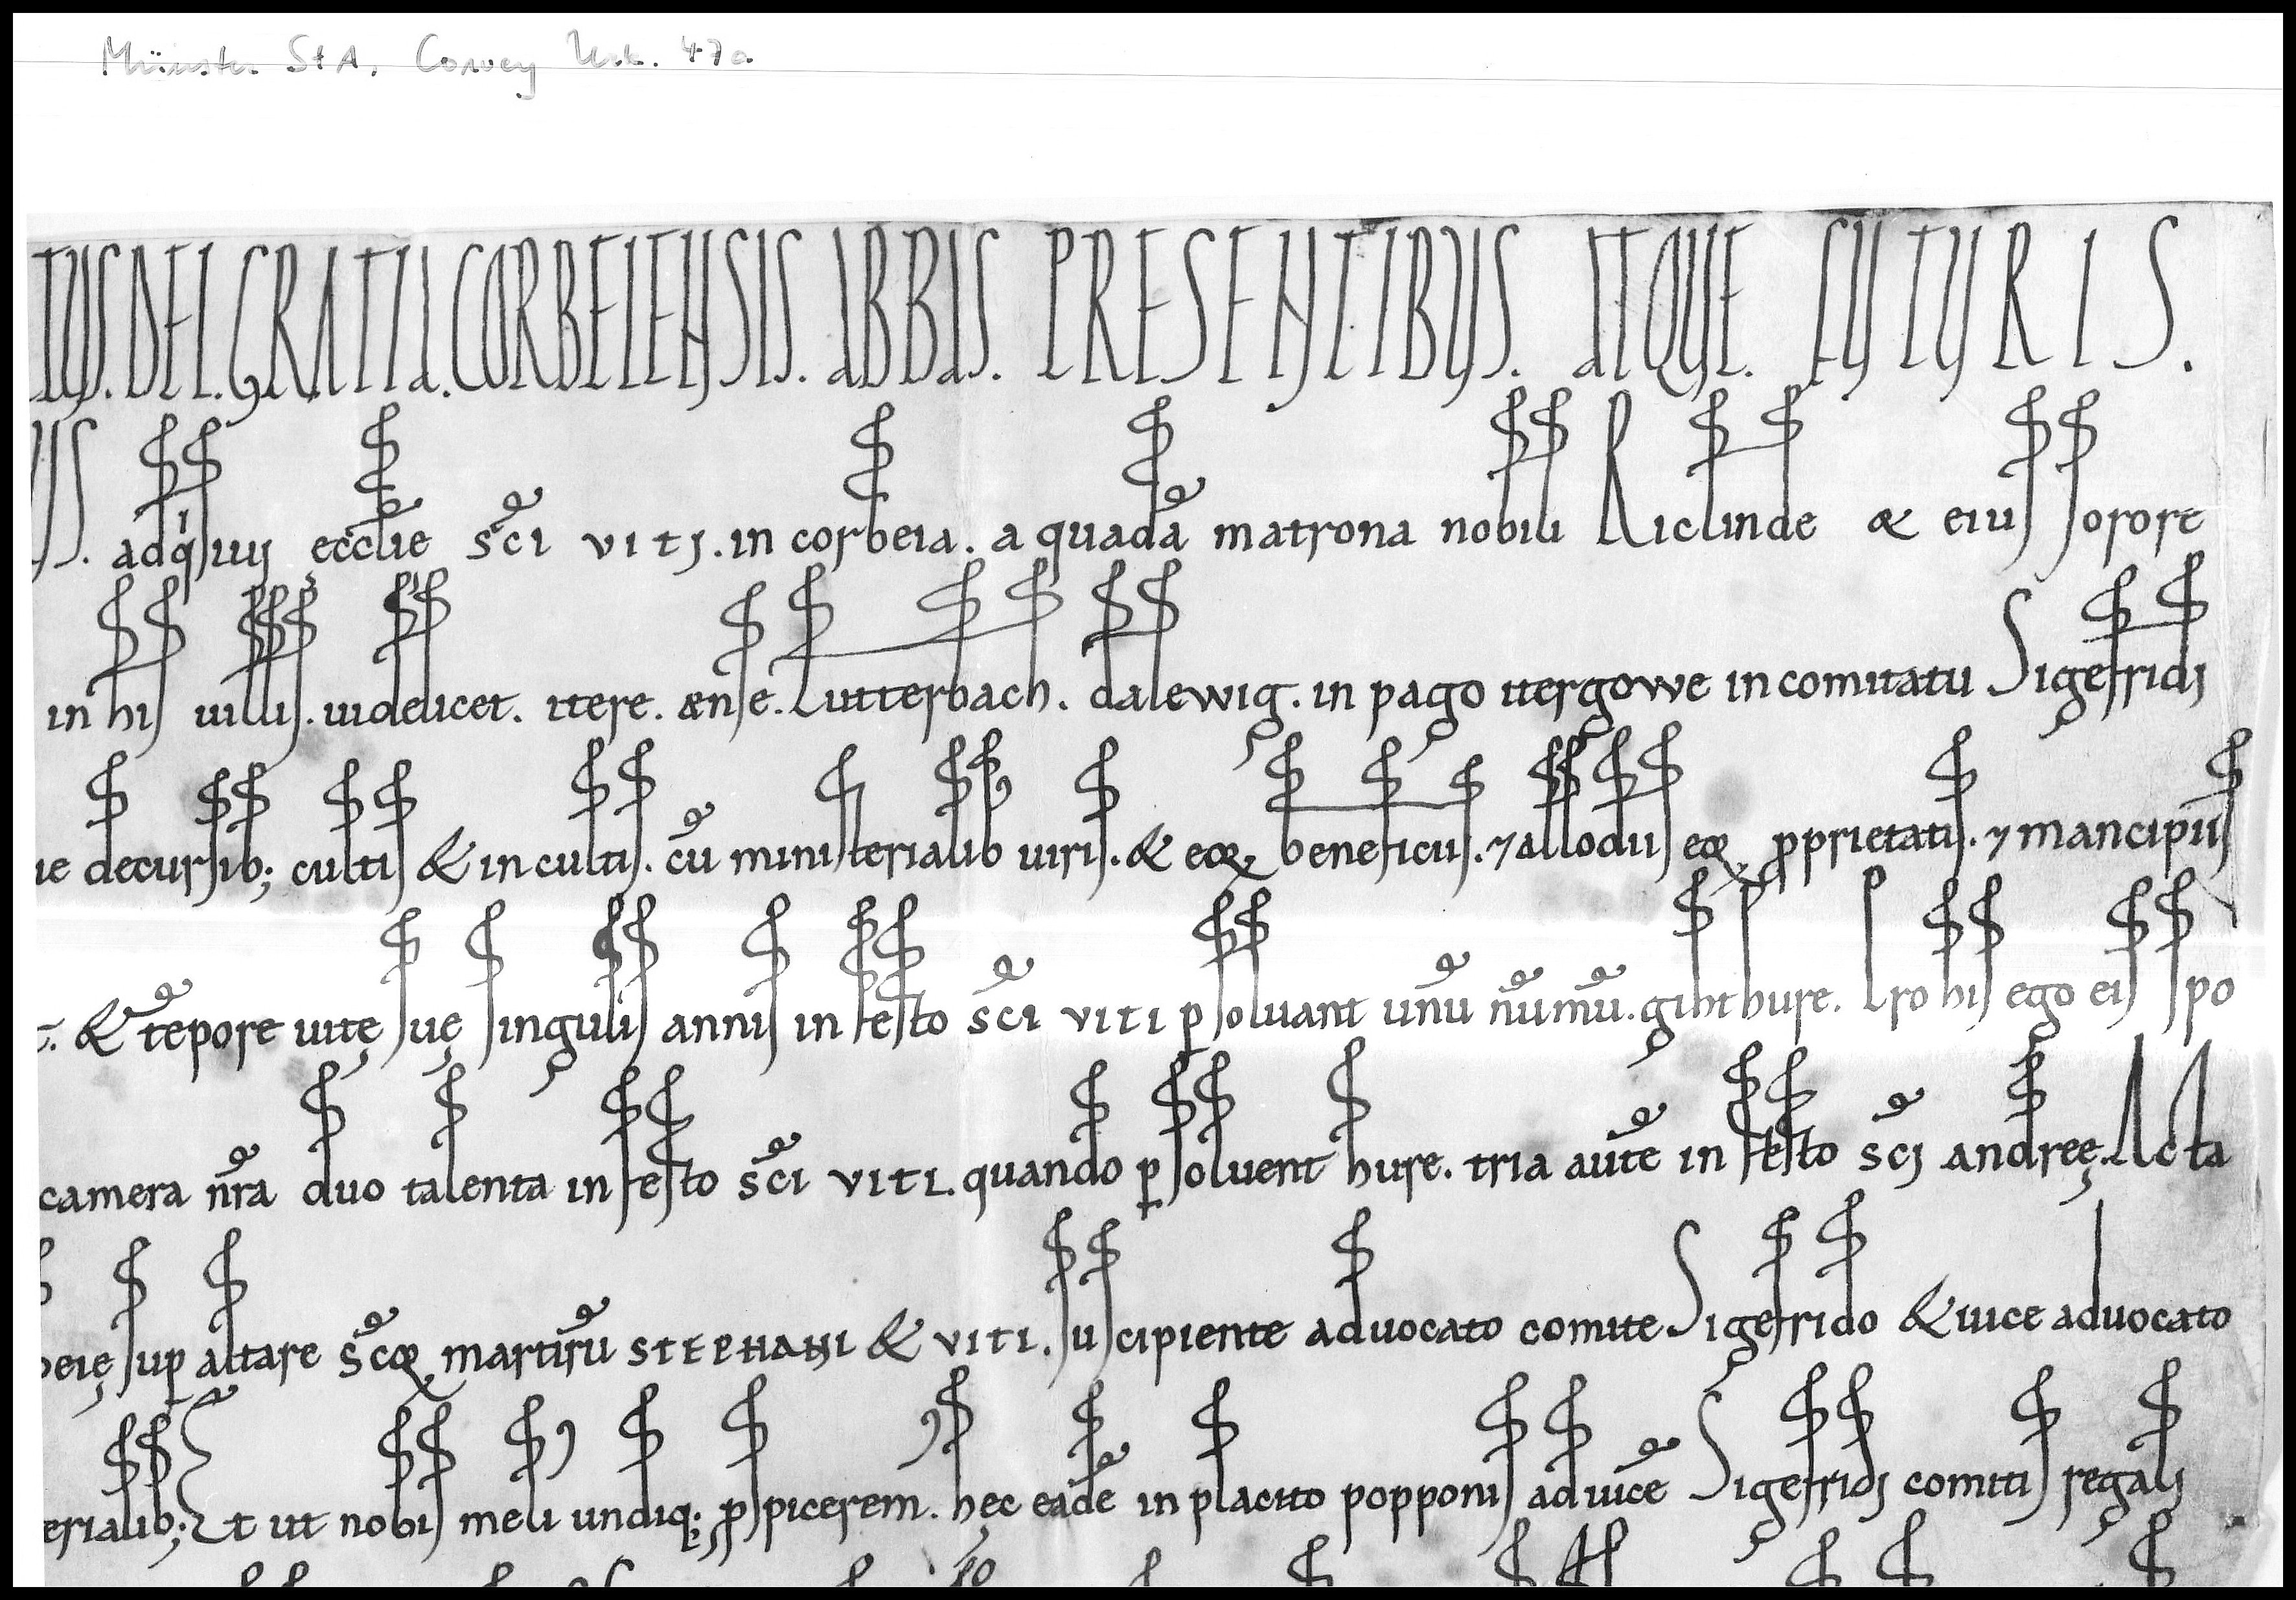 Münster StA, Corvey Urk. 47a
TUS. DEI. GRATIA. CORBEIENSIS. ABBAS. PRESENTIBUS. ATQUE. FUTURIS.
US. adqisiuj ecclie sci VITJ. in corbeia. a quadā matrona nobili Riclinde & eius sorore
in his uillis. uidelicet. itere. ænse. Lutterbach. dalewig. in pago ittergowe in comitatu Sigefridj
ue decursib; cultis & incultis. cū ministerialib uiris. & eoꝝ beneficiis. ⁊ allodiis eoꝝ ꝓprietatis. ⁊ mancipiis
& tēpore uitę suę singulis annis in festo sc̄i VITI ꝑsoluant unū nūmū. gihthure. Pro his ego eis spo
camera nr̄a duo talenta in festo sc̄i VITI. quando ꝑsoluent hure. tria autē in festo sc̄j andreę. Acta
beię suꝑ altare sc̄oꝝ martirū STEPHANI & VITI. suscipiente aduocato comite Sigefrido & uice aduocato
erialib; Et ut nobis meli undiq; ꝓspicerem. hęc eadē in placito popponis ad uicē Sigefridj comitis regalj